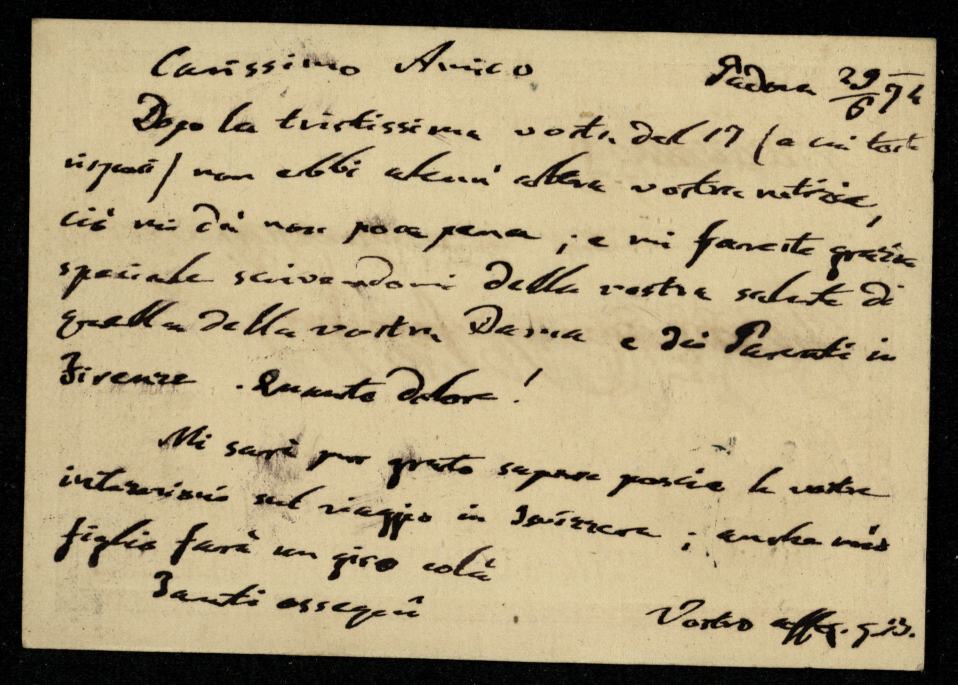 Carissimo Amico Padova 29/6 74
Dopo la tristissima vostra del 17 (a cui tosto
risposi) non ebbi alcun' altra vostra notizia,
ciò mi dà non poca pena; e mi fareste grazia
speciale scrivendomi della vostra salute di
quella della vostra Dama e dei Parenti in
Firenze. Quanto dolore!
Mi sarà pur grato sapere poscia le vostre
intenzioni sul viaggio in Isvizzera; anche mio
figlio farà un giro colà
Tanti ossequi
Vostro aff.